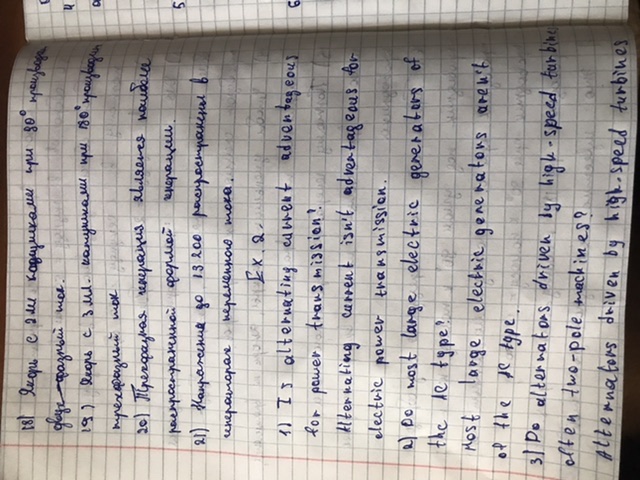 18) Якорь с 2мя катушками при 90° производ
двух-фазный ток.
19) Якорь с 3 мя. катушками при 180° производит
трехфазный ток
20) Трехфазная генерация является наиболее
распространенной формой генерации.
21) Напряжение до 13 200 распространен в
генераторах переменного тока.
Ex 2.
1) Is alternating current adventageous
for power transmission?
Alternating current isn't adventageous for
electric power transmission.
2) Do most large electric generators of
the AC type?
Most large electric generators aren't
of the AC type.
3) Do alternators driven by high-speed turbine
often two-pole machines?
Alternators driven by high-speed turbines